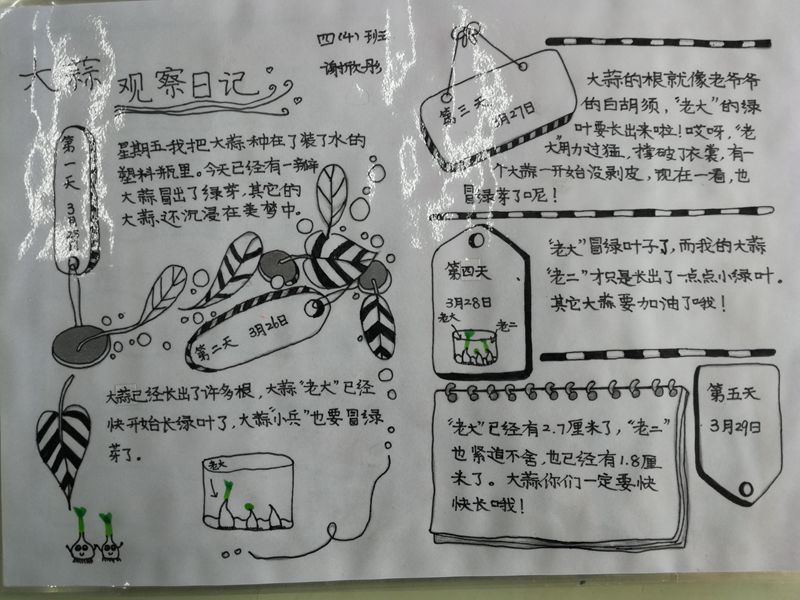 四(4)班
大蒜观察日记
第一天
3月25日
星期五我把大蒜种在了装了水的
塑料瓶里。今天已经有一瓣
大蒜冒出了绿芽,其它的
大蒜还沉浸在美梦中。
第二天 3月26日
大蒜已经长出了许多根,大蒜“老大”已经
快开始长绿叶了,大蒜“小兵”也要冒绿
芽了。
老大
第三天 3月27日
大蒜的根就像老爷爷
的白胡须,“老大”的绿
叶要长出来啦!哎呀,“老
大”用力过猛,撑破了衣裳,有一
个大蒜一开始没剥皮,现在一看,也
冒绿芽了呢!
第四天
3月28日
老大 老二
“老大”冒绿叶子了,而我的大蒜
“老二”才只是长出了一点点小绿叶。
其它大蒜要加油了哦!
第五天
3月29日
“老大”已经有2.7厘米了,“老二”
也紧追不舍,也已经有1.8厘
米了。大蒜你们一定要快
快长哦!